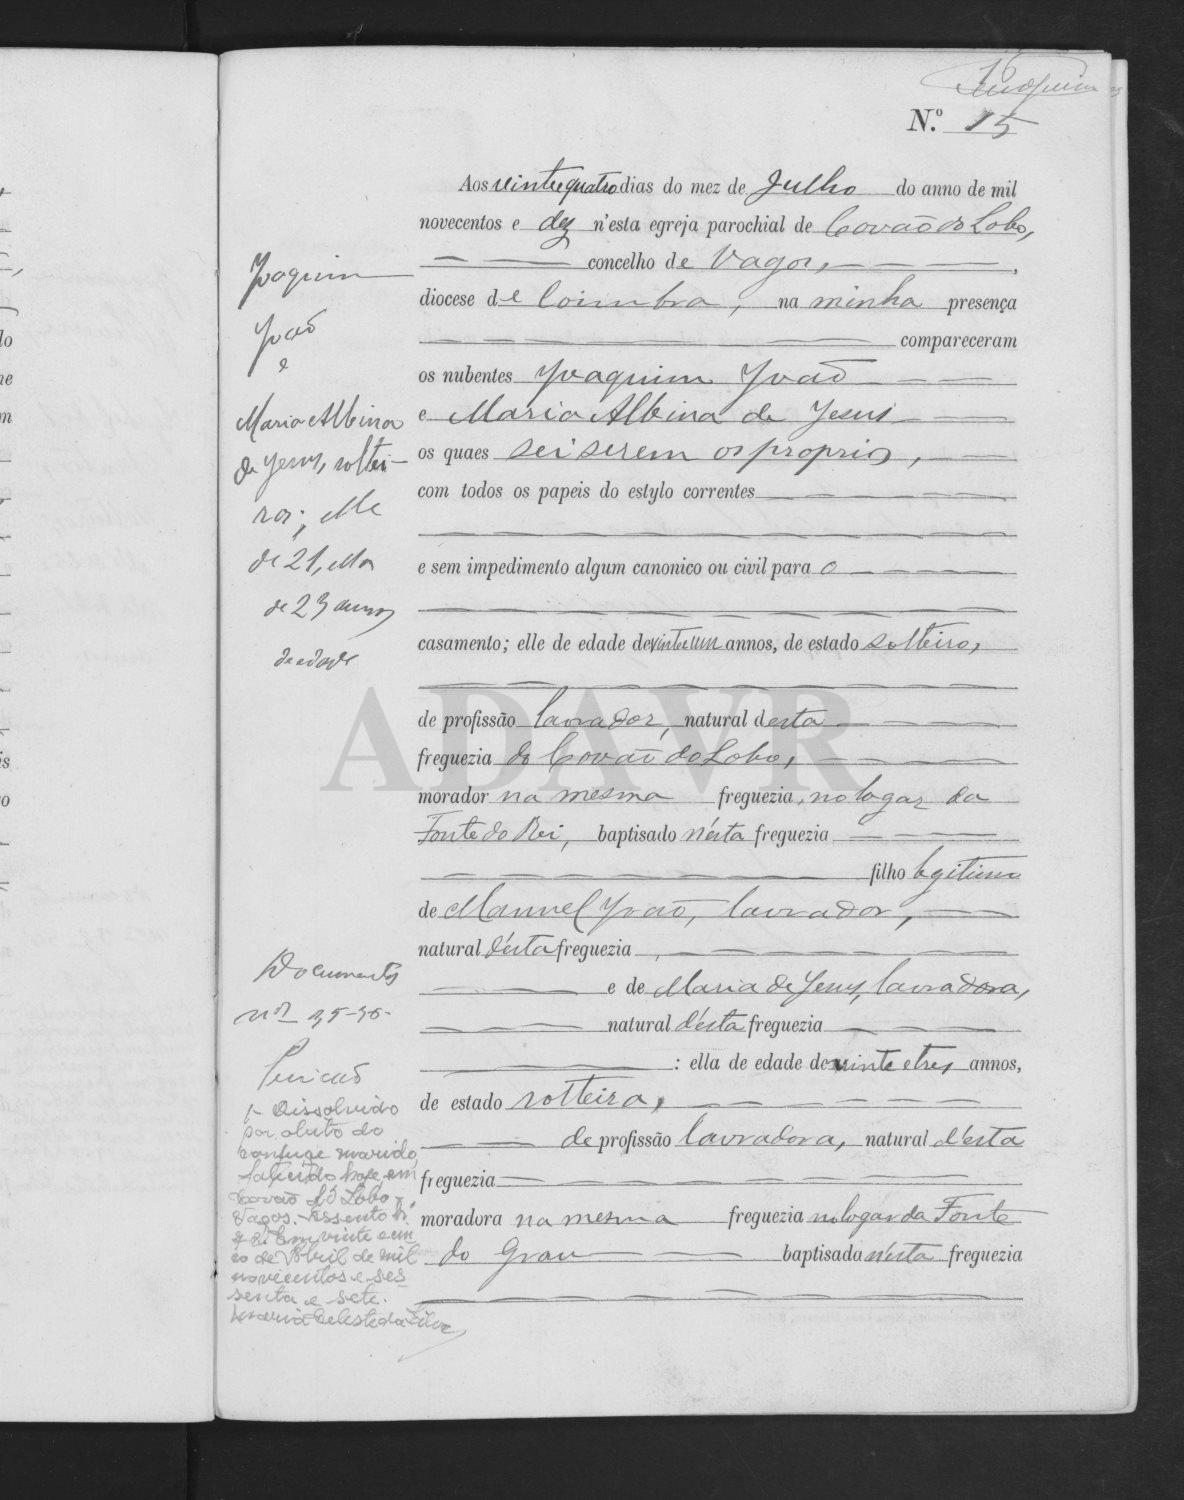 16
N.º 15
Aos vinte e quatro dias do mez de Julho do anno de mil
novecentos e dez n'esta egreja parochial de Covão do Lobo,
concelho de Vagos,
diocese de Coimbra, na minha presença
compareceram
os nubentes Joaquim João
e Maria Albina de Jesus
os quaes sei serem os proprios,
com todos os papeis do estylo correntes
e sem impedimento algum canonico ou civil para o
casamento; elle de edade de vinte e um annos, de estado solteiro,
de profissão lavrador, natural desta
freguezia do Covão do Lobo,
morador na mesma freguezia, no logar da
Fonte do Rei, baptisado n'esta freguezia
filho legitimo
de Manuel João, lavrador,
natural d'esta freguezia,
e de Maria de Jesus, lavradora,
natural d'esta freguezia
: ella de edade de vinte e tres annos,
de estado solteira,
de profissão lavradora, natural d'esta
freguezia
moradora na mesma freguezia no logar da Fonte
do Grau baptisada n'esta freguezia
Joaquim
João
e
Maria Albina
de Jesus, soltei-
ros; elle
de 21, ella
de 23 annos
de edade
Documentos
nos 35-36-
1- Dissolvido
por obito do
conjuge marido,
falecido hoje em
Covão do Lobo,
Vagos. Assento nº
Em vinte e cin
co de Abril de mil
novecentos e ses
senta e sete.
Maria Celeste da Silva
ADAVR